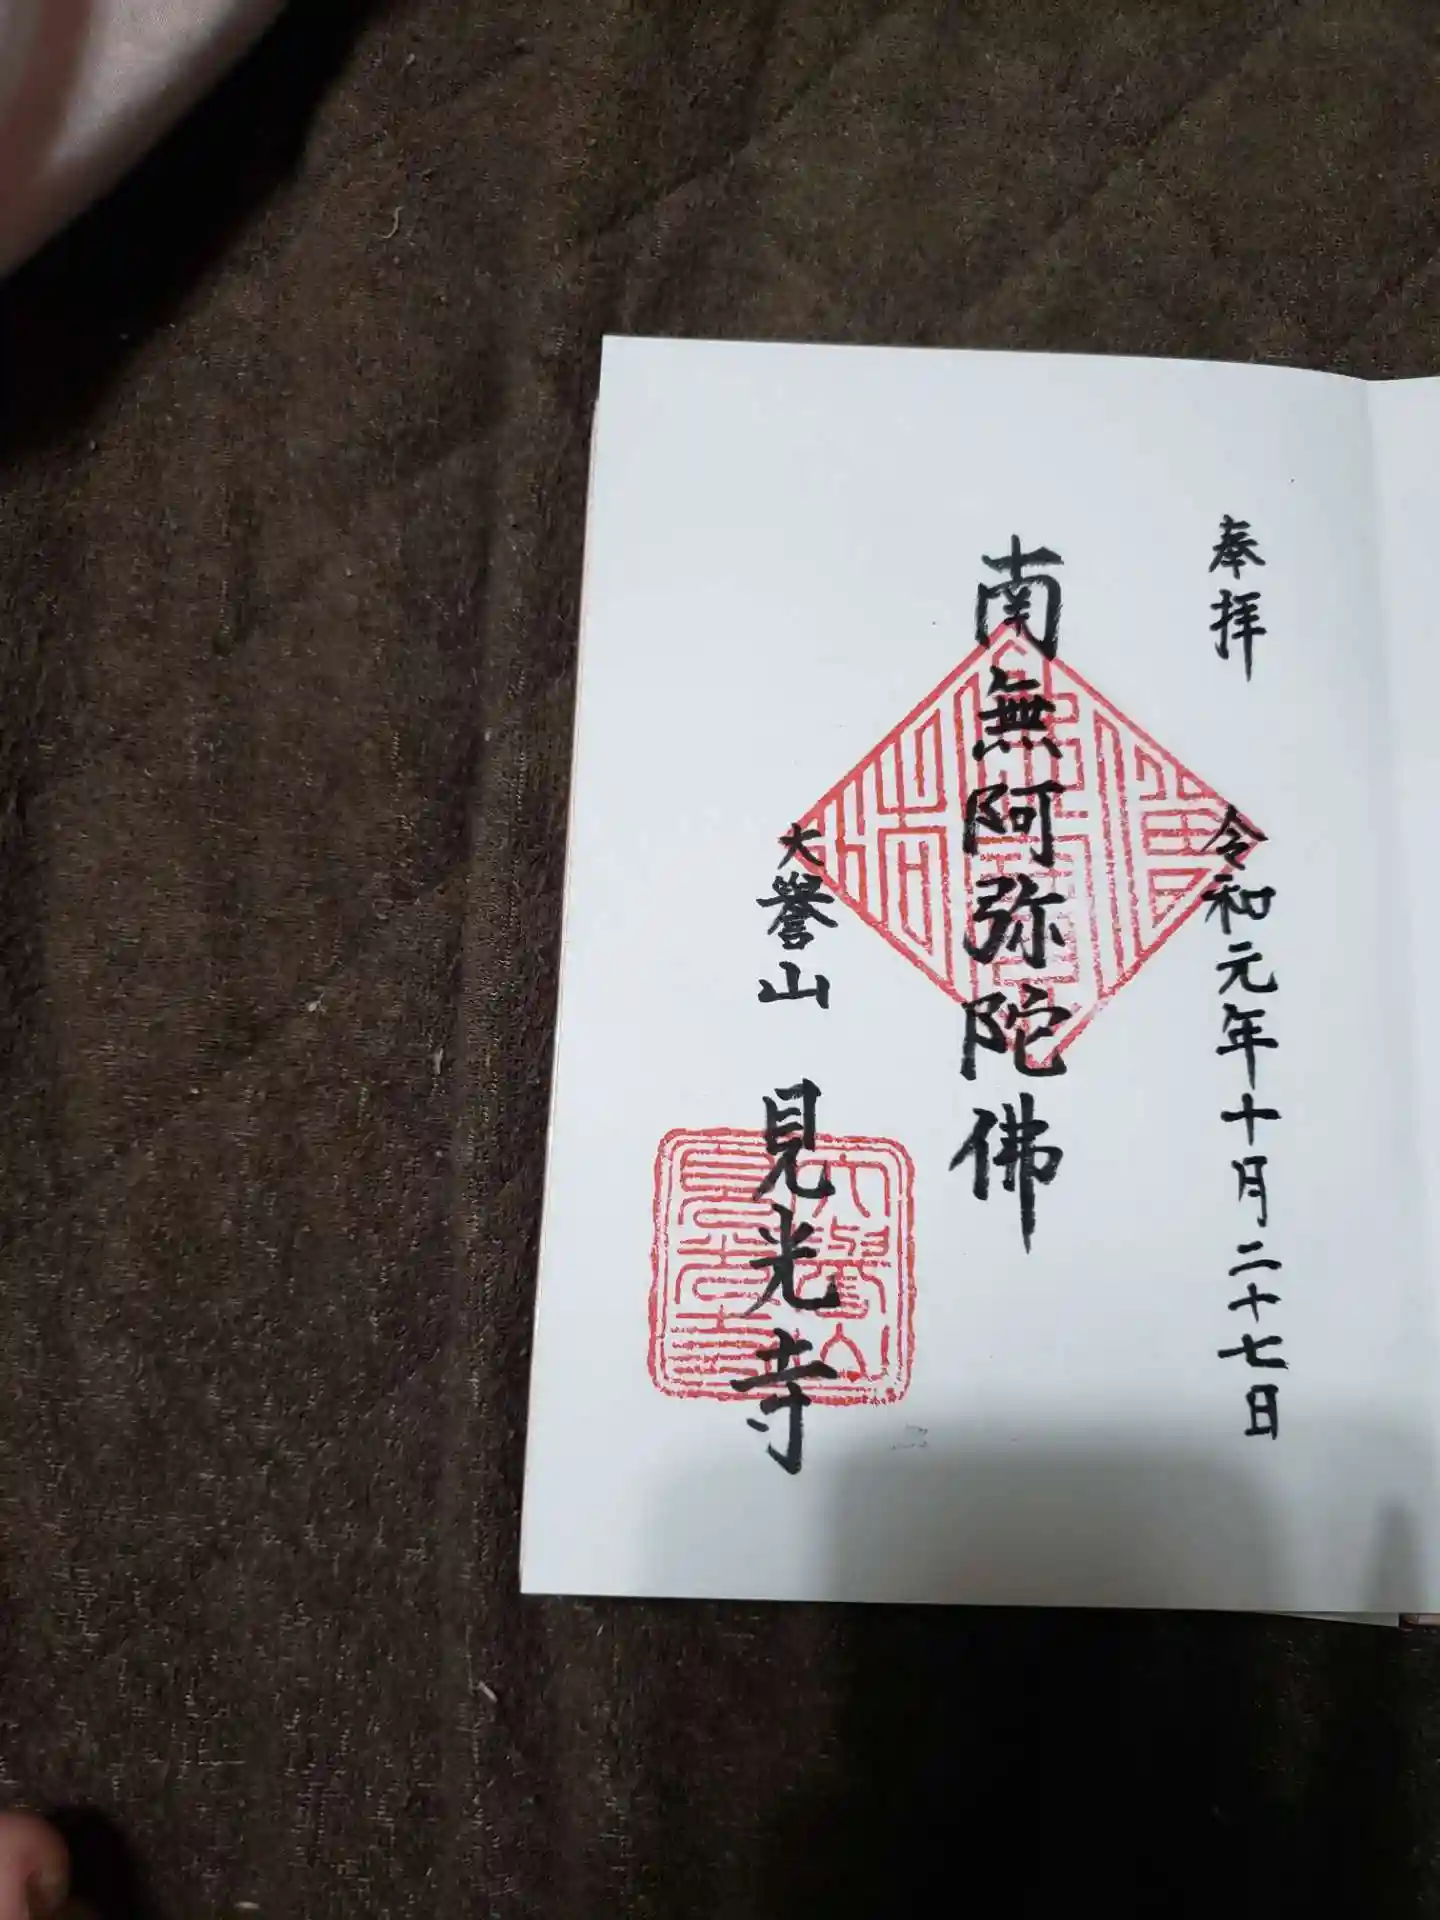 奉拝
令和元年十月二十七日
南無阿弥陀佛
大譽山 見光寺